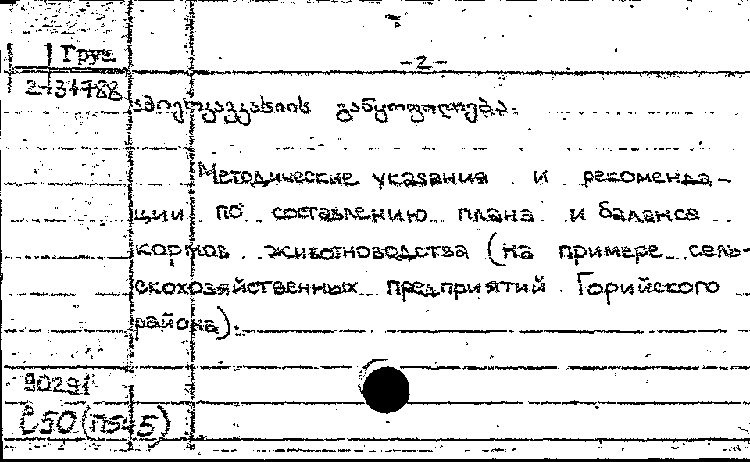 Груз
-2-
2-31788
ამიერკავკასიის განყოფილება.
Методические указания и рекоменда-
ции по составлению плана и баланса
кормов животноводства (на примере сель-
скохозяйственных предприятий Горийского
района).
90291